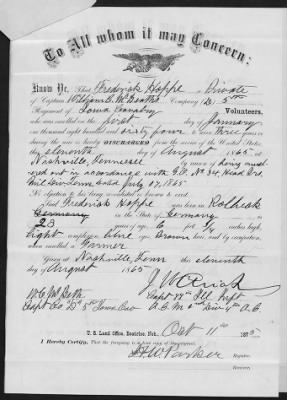 To All whom it may Concern:
Know Ye, That Frederick Hoppe a Private
of Captain William C. McBeath's Company (D) 5th
Regiment of Iowa Cavalry Volunteers,
who was enrolled on the first day of January
one thousand eight hundred and sixty four to serve three years or
during the war, is hereby DISCHARGED from the service of the United States,
this eleventh day of August, 1865, at
Nashville, Tennessee by reason of being must
ered out in accordance with G.O. No 34, Head Qrs
Mil Div Tenn, dated July 17, 1865
No objection to his being re-enlisted is known to exist.
Said Frederick Hoppe was born in
Germany in the State of Germany, is
23 years of age, 6 feet inches high,
Light complexion, blue eyes, Brown hair, and by occupation,
when enrolled, a Farmer
Given at Nashville, Tenn this eleventh
day of August 1865
W. C. McBeth
Capt Co "D" 5th Iowa Cav
Capt Ill Inft
A. C. M. 6th Div C
U. S. Land Office, Beatrice, Neb., Oct 11th 187
I Hereby Certify, That the foregoing is a true copy of the original.
H. W. Parker
Register.
Receiver.